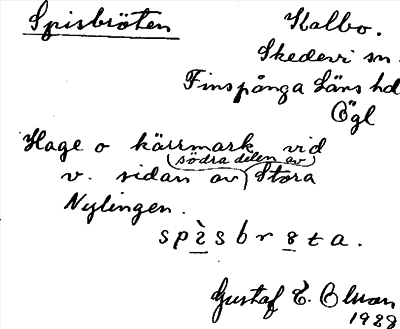 Spisbröten
Kalbo.
Skedevi sn.
Finspånga Läns hd
Ögl
Hage o kärrmark vid
södra delen av
v. sidan av Stora
Nylingen.
spìsbrɵta.
Gustaf E. Olsson
1928